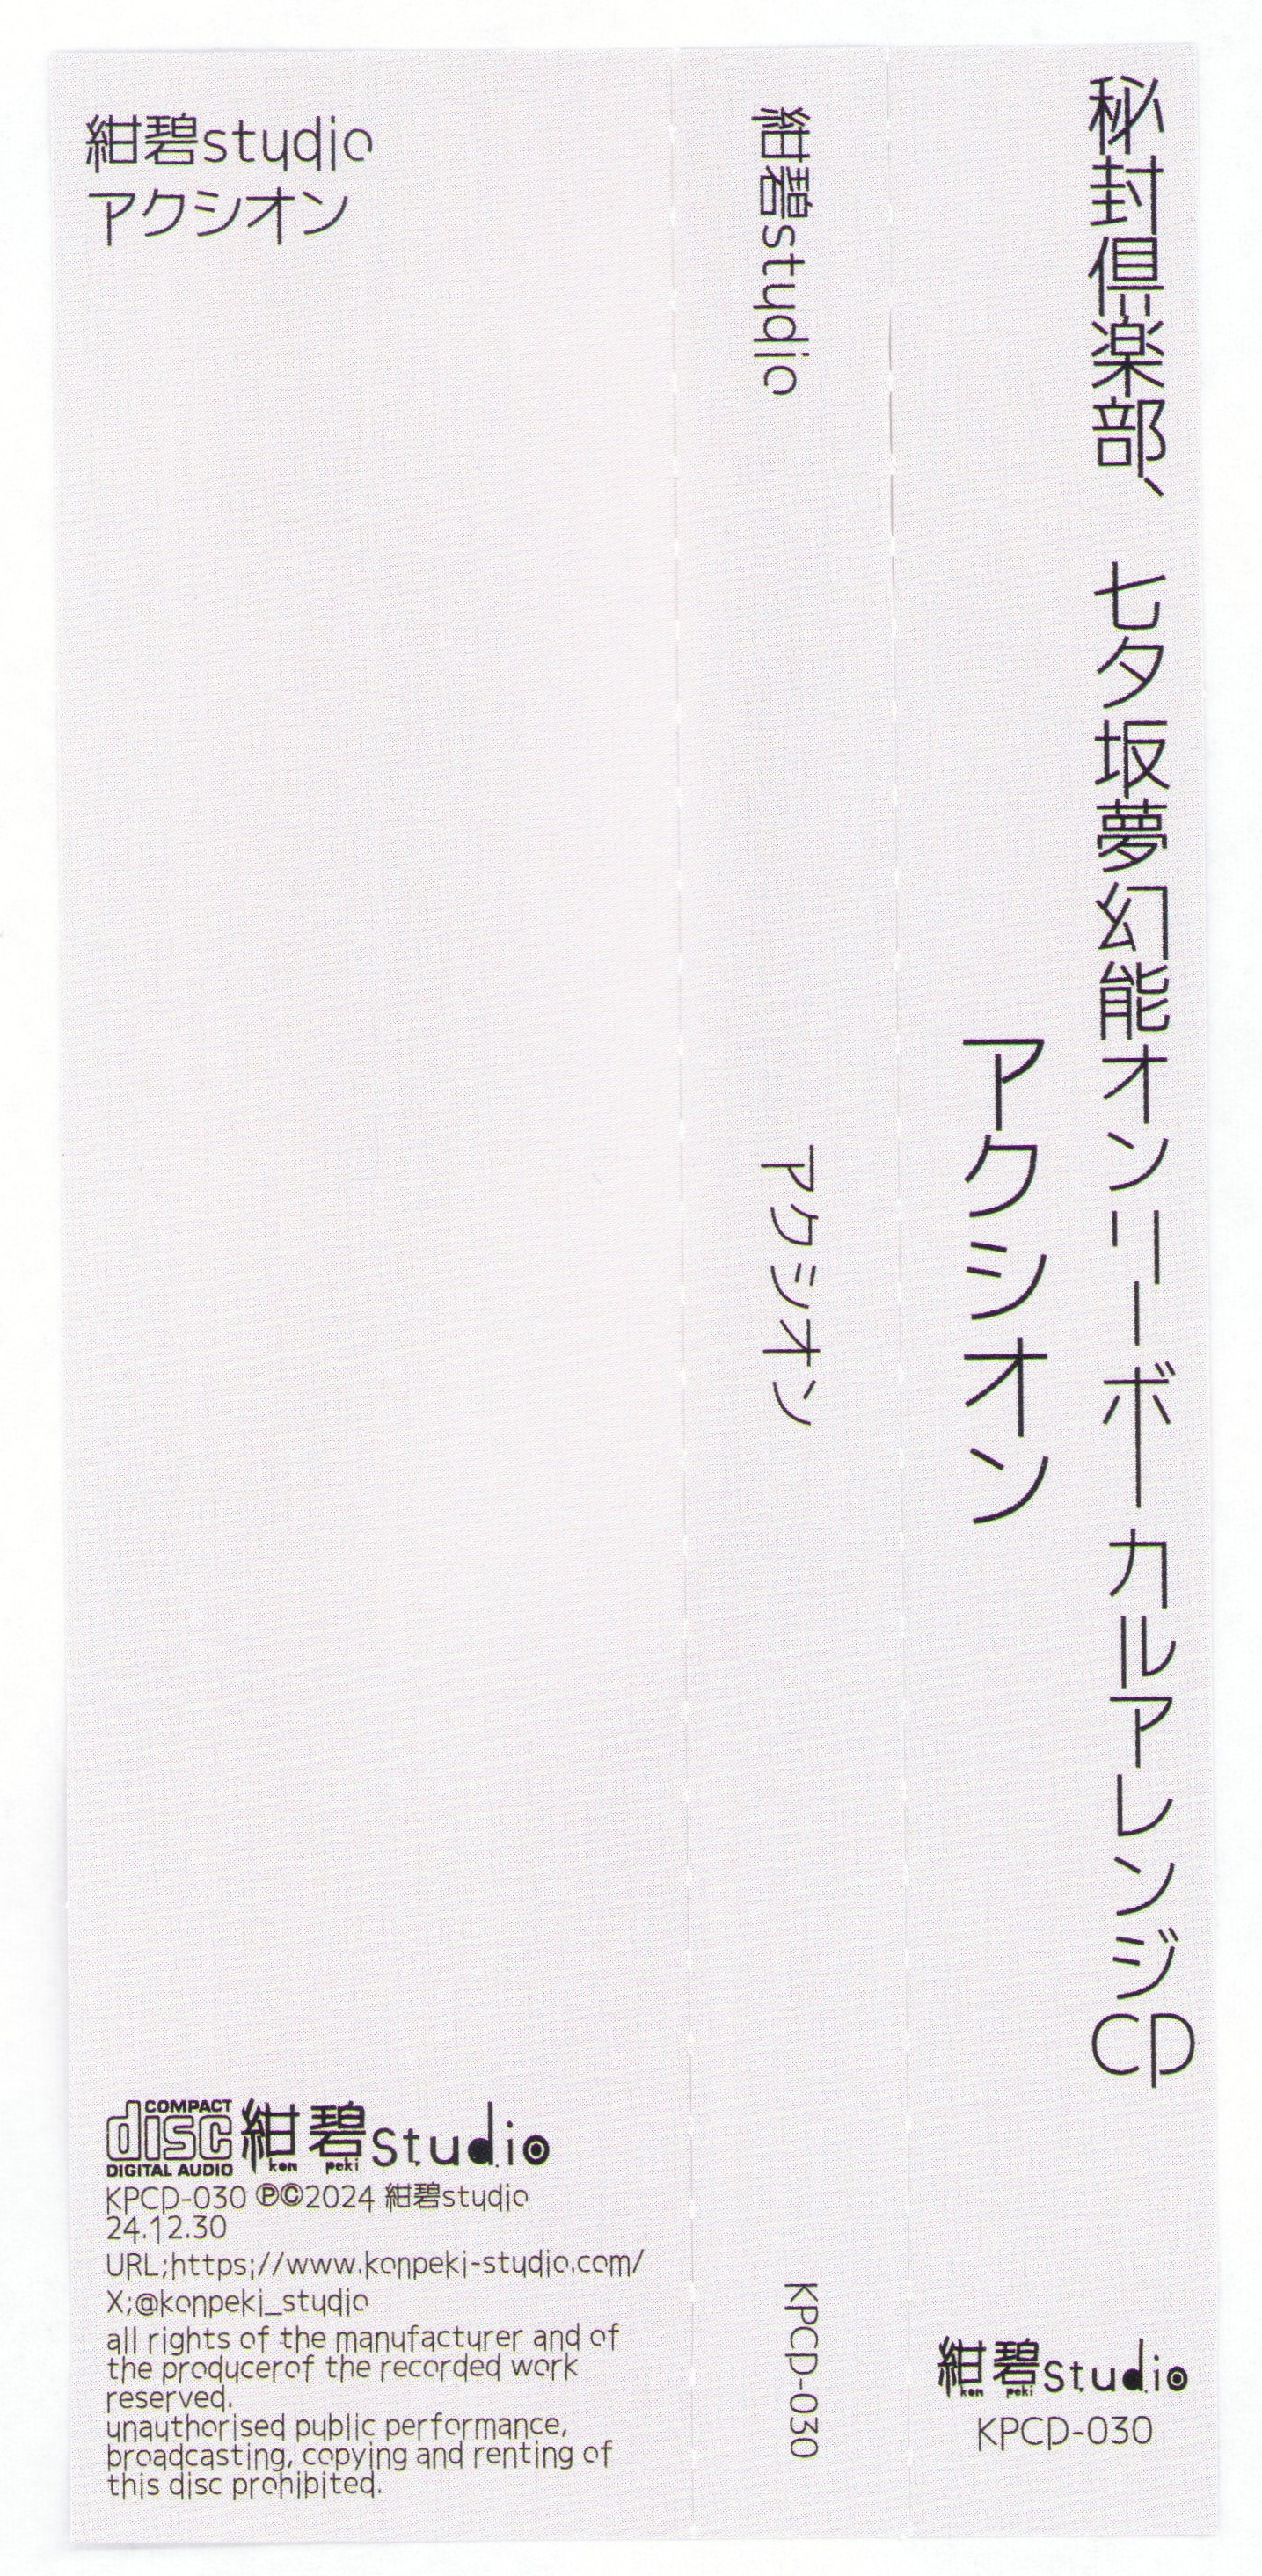 秘封倶楽部、七夕坂夢幻能オンリーボーカルアレンジCD
アクシオン
紺碧studio
kon peki
KPCD-030
紺碧studio
アクシオン
KPCD-030
紺碧studio
アクシオン
COMPACT
disc
DIGITAL AUDIO
紺碧studio
kon peki
KPCD-030 ℗©2024 紺碧studio
24.12.30
URL;https;//www.konpeki-studio.com/
X;@konpeki_studio
all rights of the manufacturer and of
the producerof the recorded work
reserved.
unauthorised public performance,
broadcasting, copying and renting of
this disc prohibited.